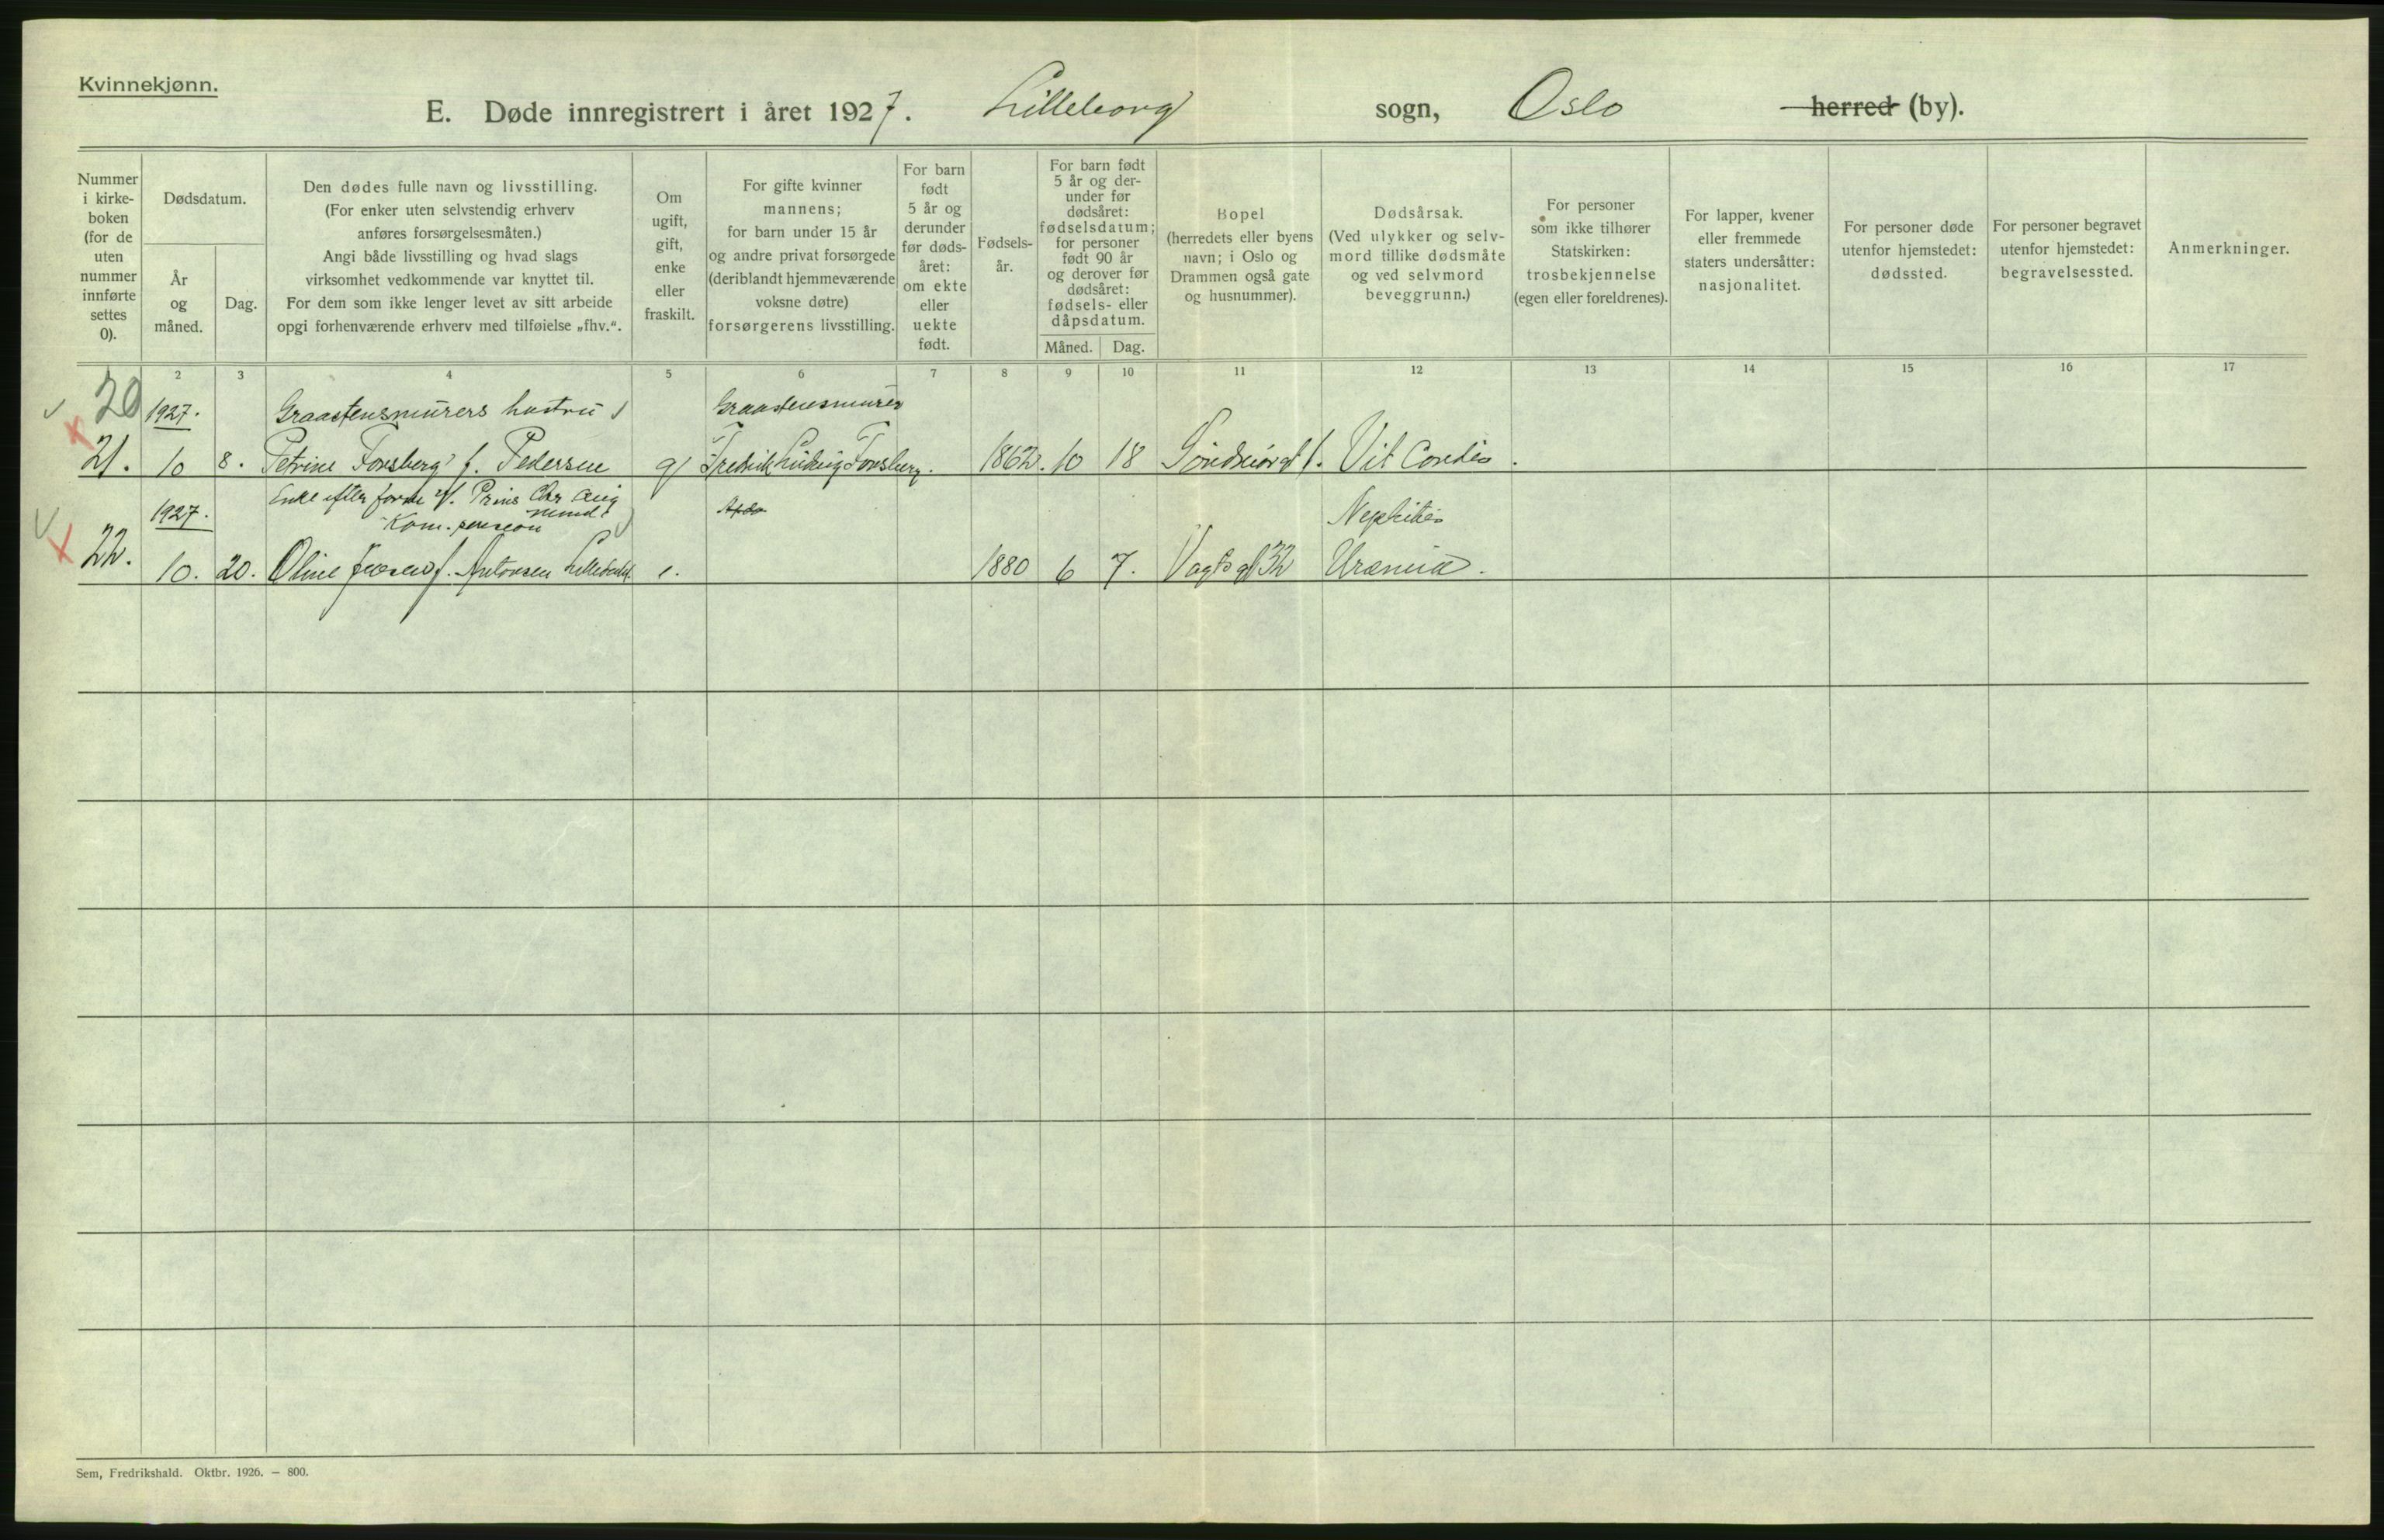 Kvinnekjønn.
E. Døde innregistrert i året 1927. Lilleborg sogn, Oslo herred (by).
Nummer i kirke- boken (for de uten nummer innførte settes 0).
Dødsdatum.
År og måned.
Dag.
Den dødes fulle navn og livsstilling.
(For enker uten selvstendig erhverv
anføres forsørgelsesmåten.)
Angi både livsstilling og hvad slags
virksomhet vedkommende var knyttet til.
For dem som ikke lenger levet av sitt arbeide
opgi forhenværende erhverv med tilføielse „fhv.“.
Om ugift, gift, enke eller fraskilt.
For gifte kvinner
mannens;
for barn under 15 år
og andre privat forsørgede
(deriblandt hjemmeværende
voksne døtre)
forsørgerens livsstilling.
For barn født 5 år og derunder før døds- året: om ekte eller uekte født.
Fødsels- år.
For barn født
5 år og der-
under før
dødsåret:
fødselsdatum;
for personer
født 90 år
og derover før
dødsåret:
fødsels- eller
dåpsdatum.
Måned. Dag.
Bopel
(herredets eller byens
navn; i Oslo og
Drammen også gate
og husnummer).
Dødsårsak.
(Ved ulykker og selv-
mord tillike dødsmåte
og ved selvmord
beveggrunn.)
For personer
som ikke tilhører
Statskirken:
trosbekjennelse
(egen eller foreldrenes).
For lapper, kvener
eller fremmede
staters undersåtter:
nasjonalitet.
For personer døde
utenfor hjemstedet:
dødssted.
For personer begravet
utenfor hjemstedet:
begravelsessted.
Anmerkninger.
2 3 4 5 6 7 8 9 10 11 12 13 14 15 16 17
20 1927. Graastensmurers hustru Graastensmurer
21. 10 8. Petrine Forsberg f. Pedersen g Fredrik Ludvig Forsberg. 1862. 10 18 1. Vit Cordis.
1927. Enke efter Prins Chr Aug
Kom. pension Nephitis
22. 10. 20. Oline f. Antonsen e. 1880 6 7. Vogts gt 32 Uræmia.
Sem, Fredrikshald. Oktbr. 1926. — 800.